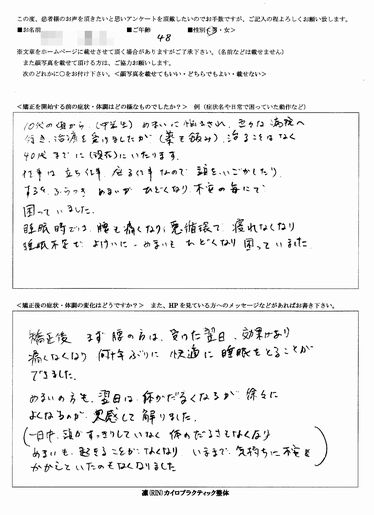 この度、患者様のお声を頂きたいと思いアンケートを頂戴したいのでお手数ですが、ご記入の程よろしくお願い致します。
■お名前 ■ご年齢 48 ■性別(男・女)
※文章をホームページに載せさせて頂く場合がありますがご了承下さい。(名前などは載せません)
また顔写真を載せて頂ける方は、ご協力お願いします。
次のどれかに○をお付け下さい。<顔写真を載せてもいい・どちらでもよい・載せない>
<矯正を開始する前の症状・体調はどの様なものでしたか？> 例(症状名や日常で困っていた動作など)
10代の頃から(中学生)めまいに悩まされ、色々な病院へ
行き、治療を受けましたが(薬も飲み)、治ることはなく
40代までに(現在)にいたります。
仕事は立ち仕事、座る仕事なので頭をいごかしたり、
すると、ふらつき めまいが ひどくなり 不安の毎日で
困っていました。
睡眠時では、腰も痛くなり、悪循環で、寝れなくなり
睡眠不足で よけいに めまいも ひどくなり 困っていました。
<矯正後の症状・体調の変化はどうですか？> また、HPを見ている方へのメッセージなどがあればお書き下さい。
矯正後 まず 腰の方は、受けた翌日、効果があり
痛くなくなり 何十年ぶりに 快適に睡眠をとることが
できました。
めまいの方も、翌日は 体がだるくなるが 徐々に
よくなるのが、実感して解りました。
(一日中、頭がすっきりしていなく 体のだるさもなくなり
めまいも、起きることが、なくなり いままで、気持ちに不安を
かかえていたのもなくなりました)
凛(RIN)カイロプラクティック整体